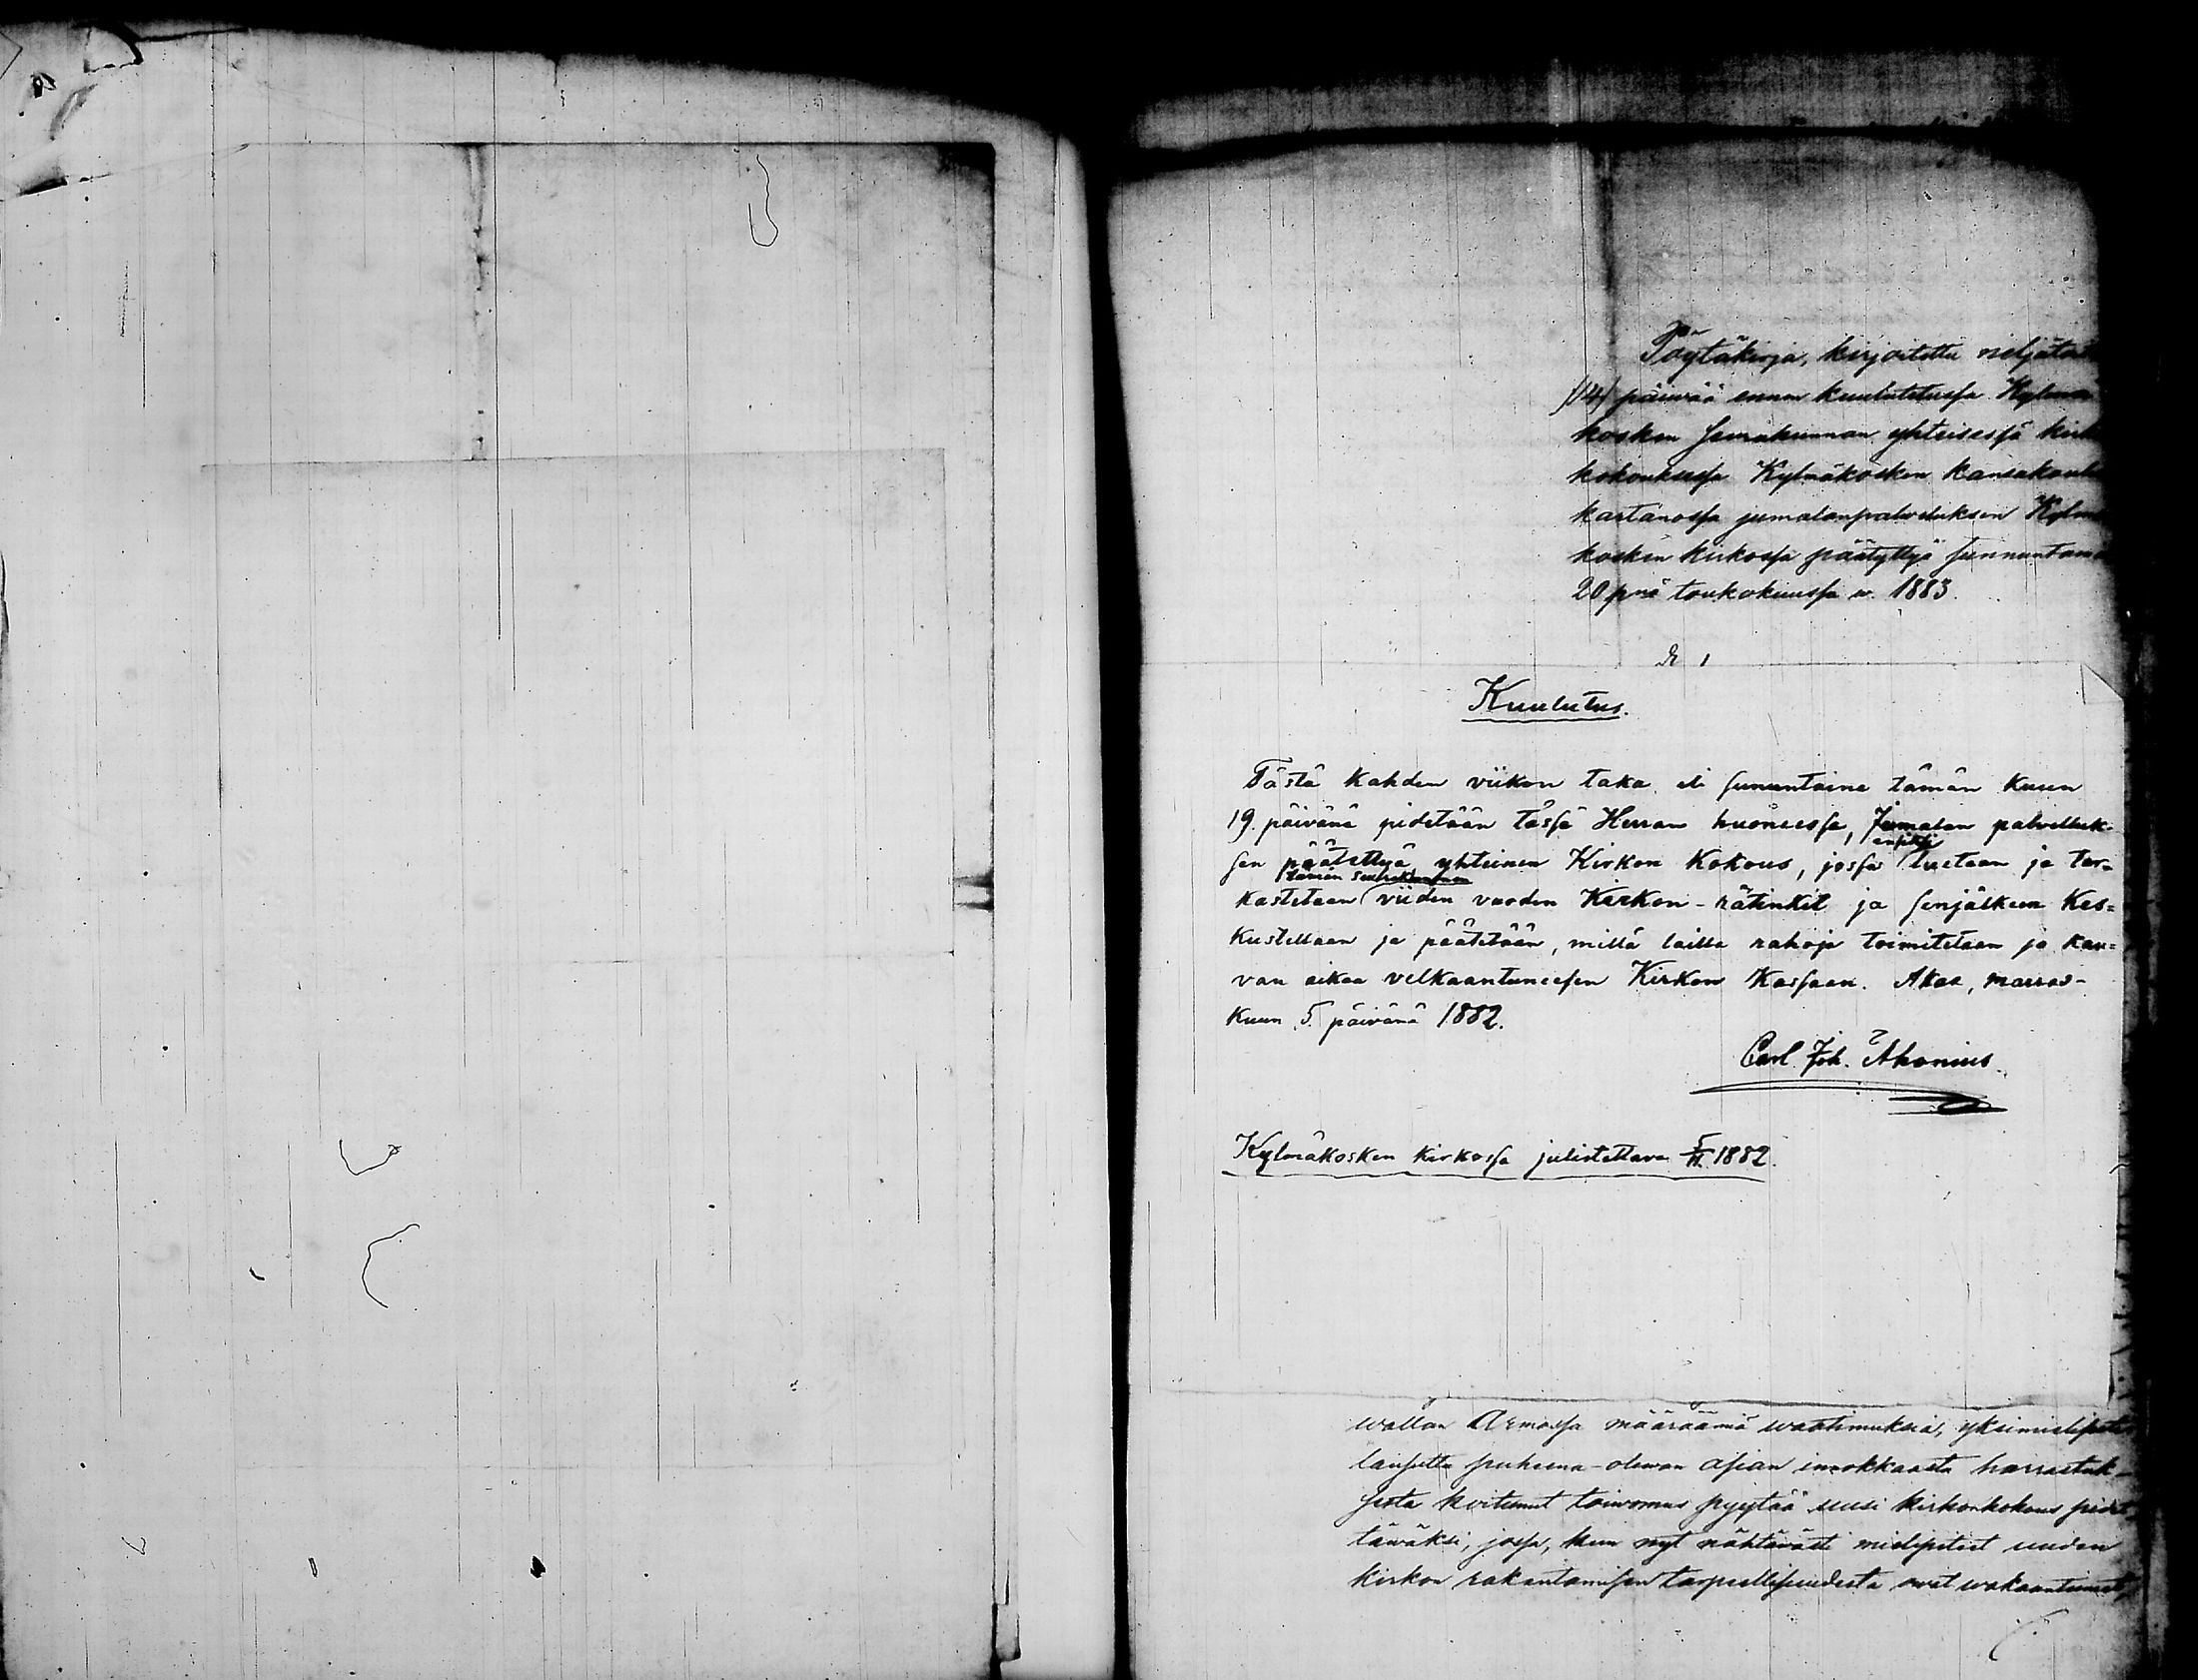 Pöytäkirja, kirjoitettu neljätois
/14/ päivää ennen kuulutetussa Kylmä
kosken seurakunnan yhteisessä kirk
kokouksessa Kylmäkosken kansakoulu
kartanossa jumalanpalveluksen Kylmä
kosken kirkossa päätyttyä sunnuntaina
20 pnä toukokuussa w. 1883.
№ 1
Kuulutus.
Tästä kahden viikon taka eli sununtaina tämän kuun
19. päivänä pidetään tässä Herran huoneessa, Jumalan palvelluk-
sen päätettyä yhteinen Kirkon Kokous, jossa ensiksi luetaan ja tar-
kastetaan tämän seurakunnan viiden vuoden Kirkon-rätinkit ja senjälkeen Kes=
kustellaan ja päätetään, millä lailla rahoja toimitetaan jo kau=
van aikaa velkaantuneesen Kirkon Kassaan. Akaa, marras-
kuun 5. päivänä 1882.
Carl Joh. Ahonius.
Kylmäkosken kirkossa julistettava 5/11. 1882.
wallan Armossa määräämiä waatimuksia, yksimielisesti
lausuttu puheena-olewan asian innokkaasta harrastuk-
sesta koitunut toiwomus pyytää uusi kirkonkokous pidet
täwäksi, jossa, kun nyt nähtäwästi mielipiteet uuden
kirkon rakentamisen tarpeellisuudesta owat wakaantuneet